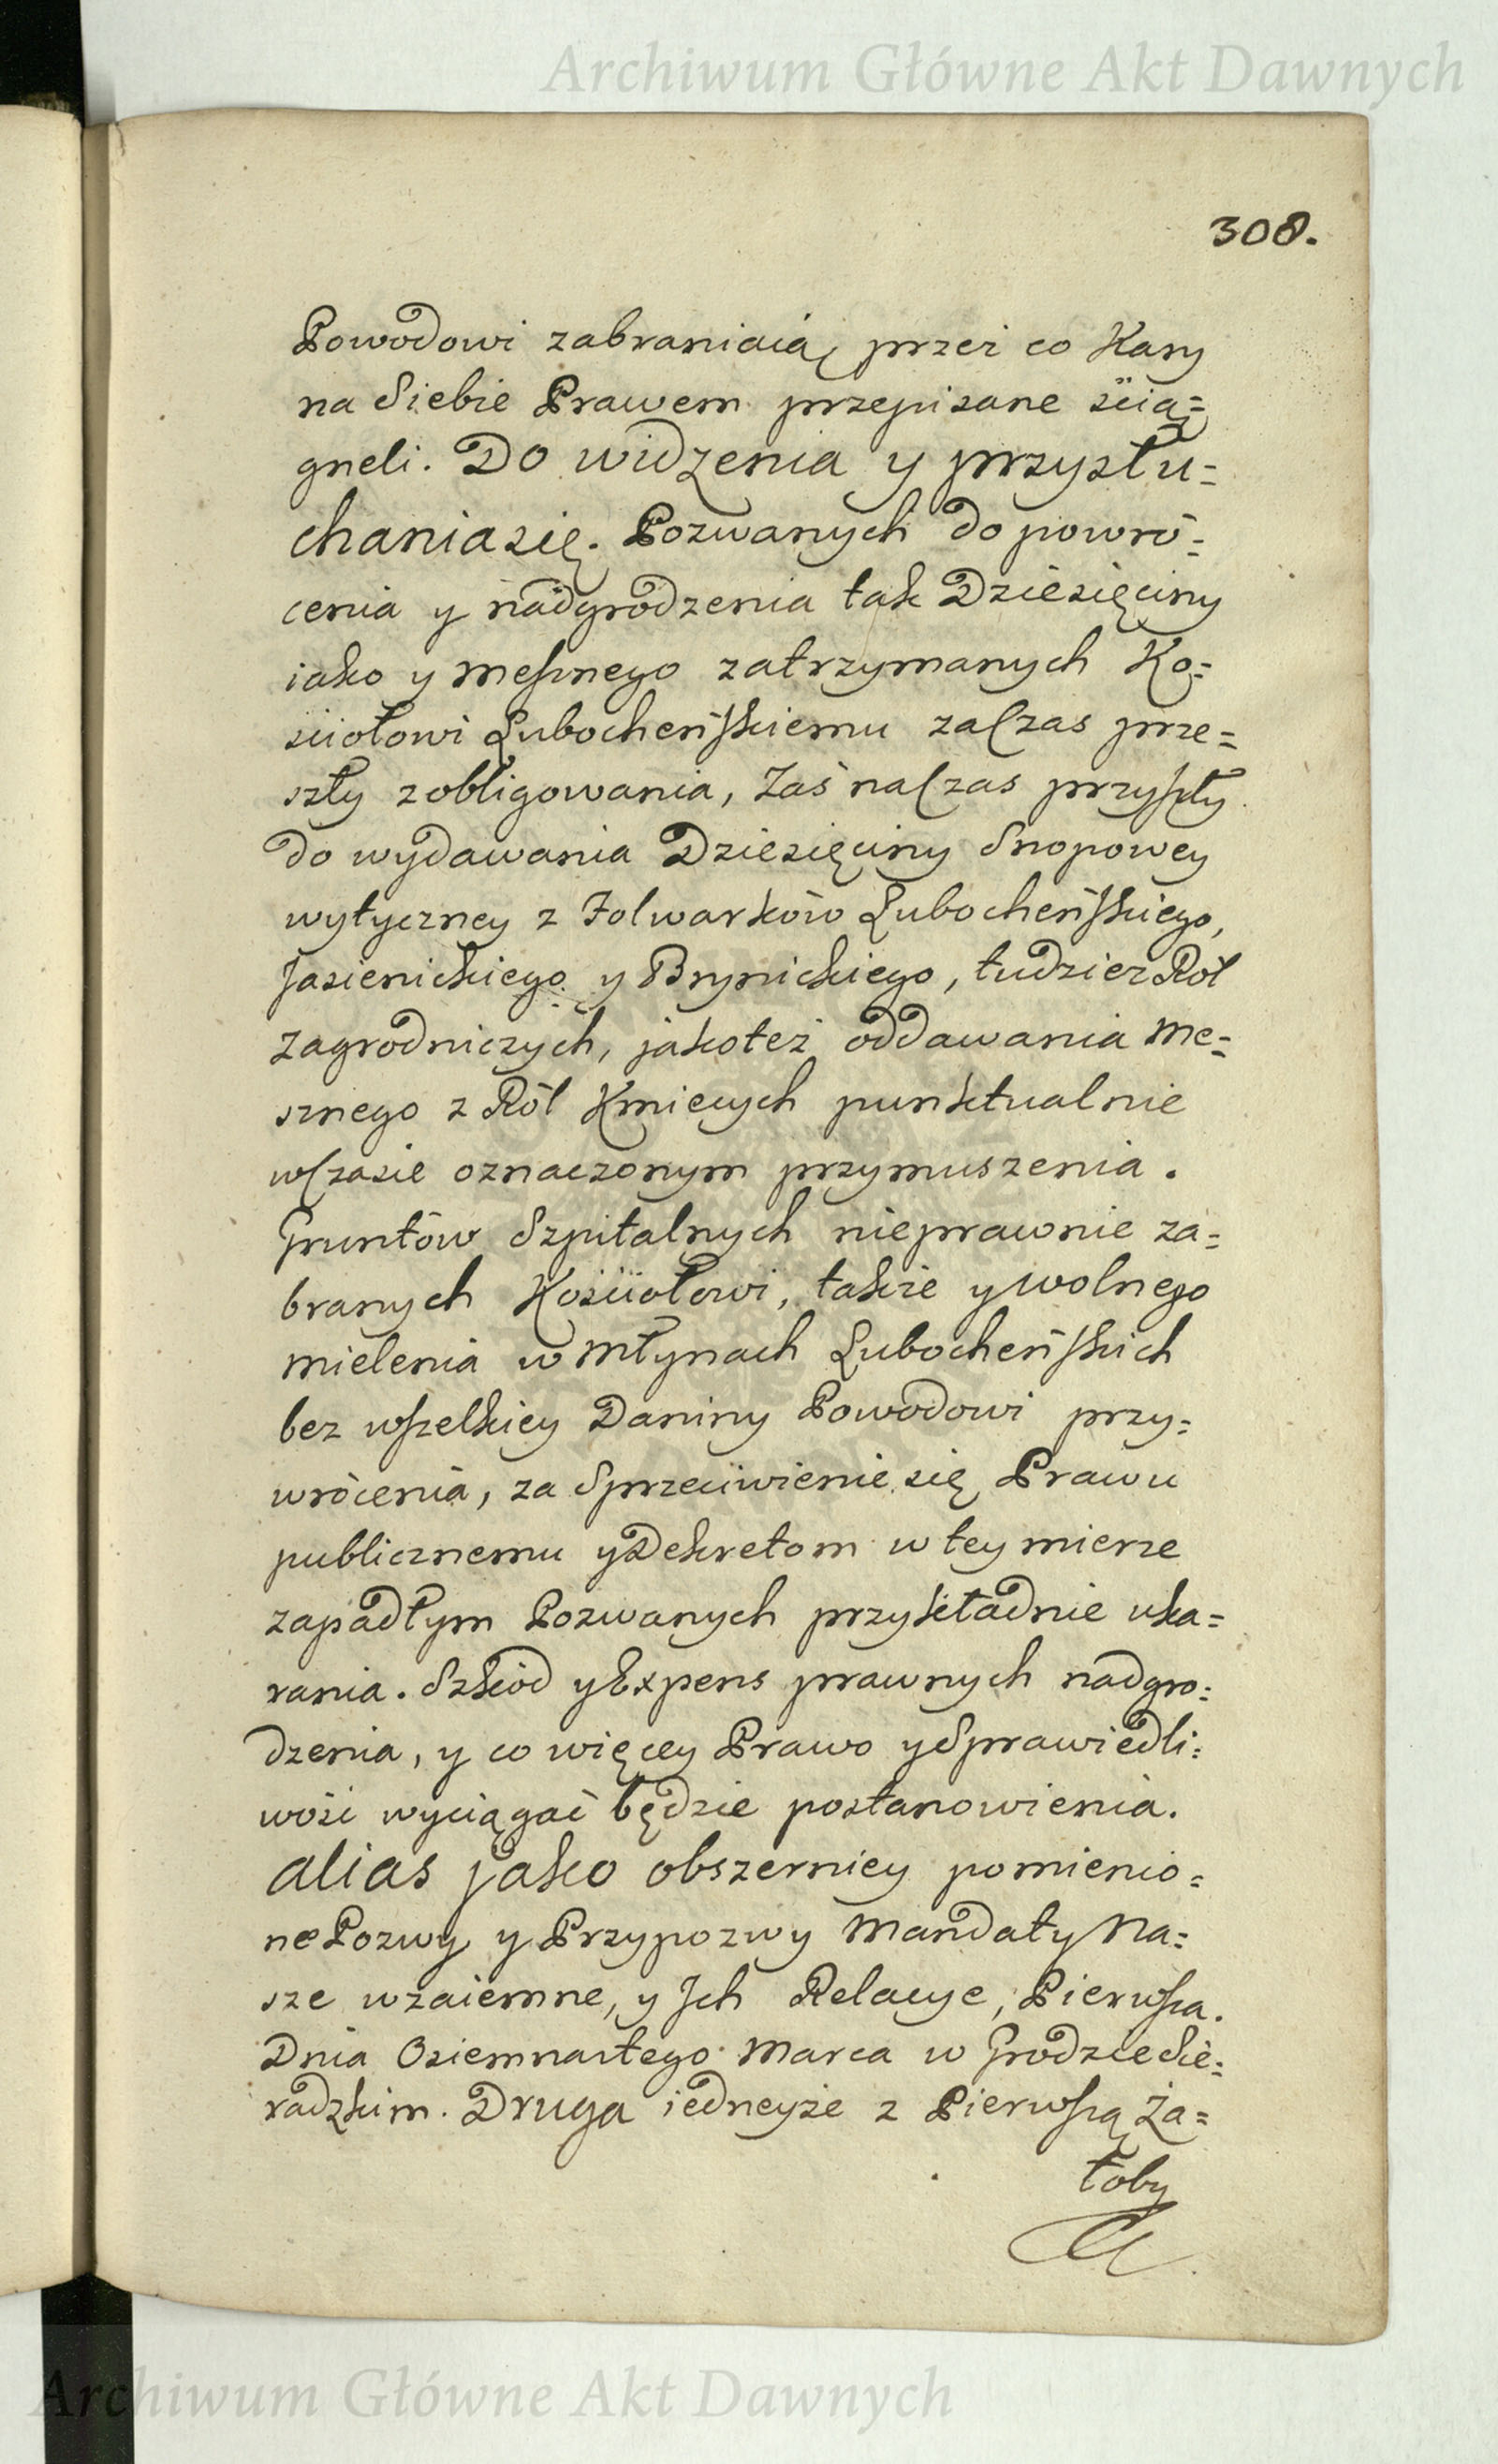 Archiwum Główne Akt Dawnych
308.
Powodowi zabraniaią, przez co Kary
na Siebie Prawem przepisane ścią=
gneli. Do widzenia y przysłu=
chania się. Pozwanych do powró=
cenia y nadgrodzenia tak Dziesięciny
iako y Mesznego zatrzymanych Ko=
ściołowi Lubocheńskiemu za Czas prze=
szły zobligowania, Zaś na Czas przyszły
do wydawania Dziesięciny Snopowey
wytyczney z Folwarków Lubocheńskiego,
Jasienickiego y Brynickiego, tudzież Ról
Zagrodniczych, jakoteż oddawania Me=
sznego z Ról Kmiecych punktualnie
w Czasie oznaczonym przymuszenia.
Gruntów Szpitalnych nieprawnie za=
branych Kościołowi, także y wolnego
mielenia w Młynach Lubocheńskich
bez wszelkiey Daniny Powodowi przy=
wrócenia, za Sprzeciwienie się Prawu
publicznemu y Dekretom w tey mierze
zapadłym Pozwanych przykładnie uka=
rania. Szkód y Expens prawnych nadgro=
dzenia, y co więcey Prawo y Sprawiedli=
wość wyciągać będzie postanowienia.
alias jako obszerniey pomienio=
ne Pozwy y Przypozwy Mandaty Na=
sze wzaiemne, y Jch Relacye, Pierwsza.
Dnia Osiemnastego Marca w Grodzie Sie=
radzkim. Druga iedneyże z Pierwszą Ża=
łoby
Archiwum Główne Akt Dawnych